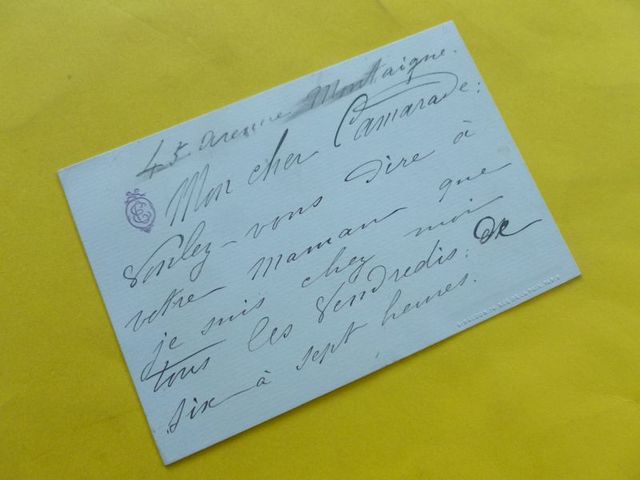 45 avenue Montaigne.
Mon cher Camarade:
Voulez-vous dire à
votre maman que
je suis chez moi
tous les Vendredis: de
six à sept heures.